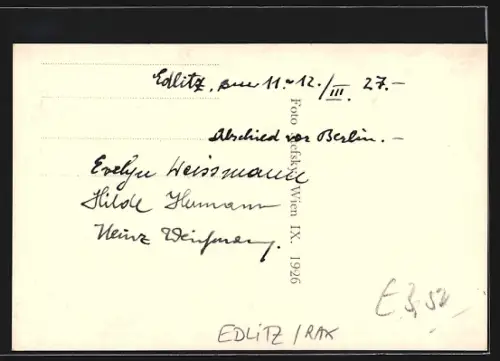 Edlitz, am 11.-12./III. 27.-
Abschied vor Berlin.-
Evelyn Weissmann
Hilde Hermann
Heinz
Foto Wien IX. 1926
E 3,50
EDLITZ / RAX